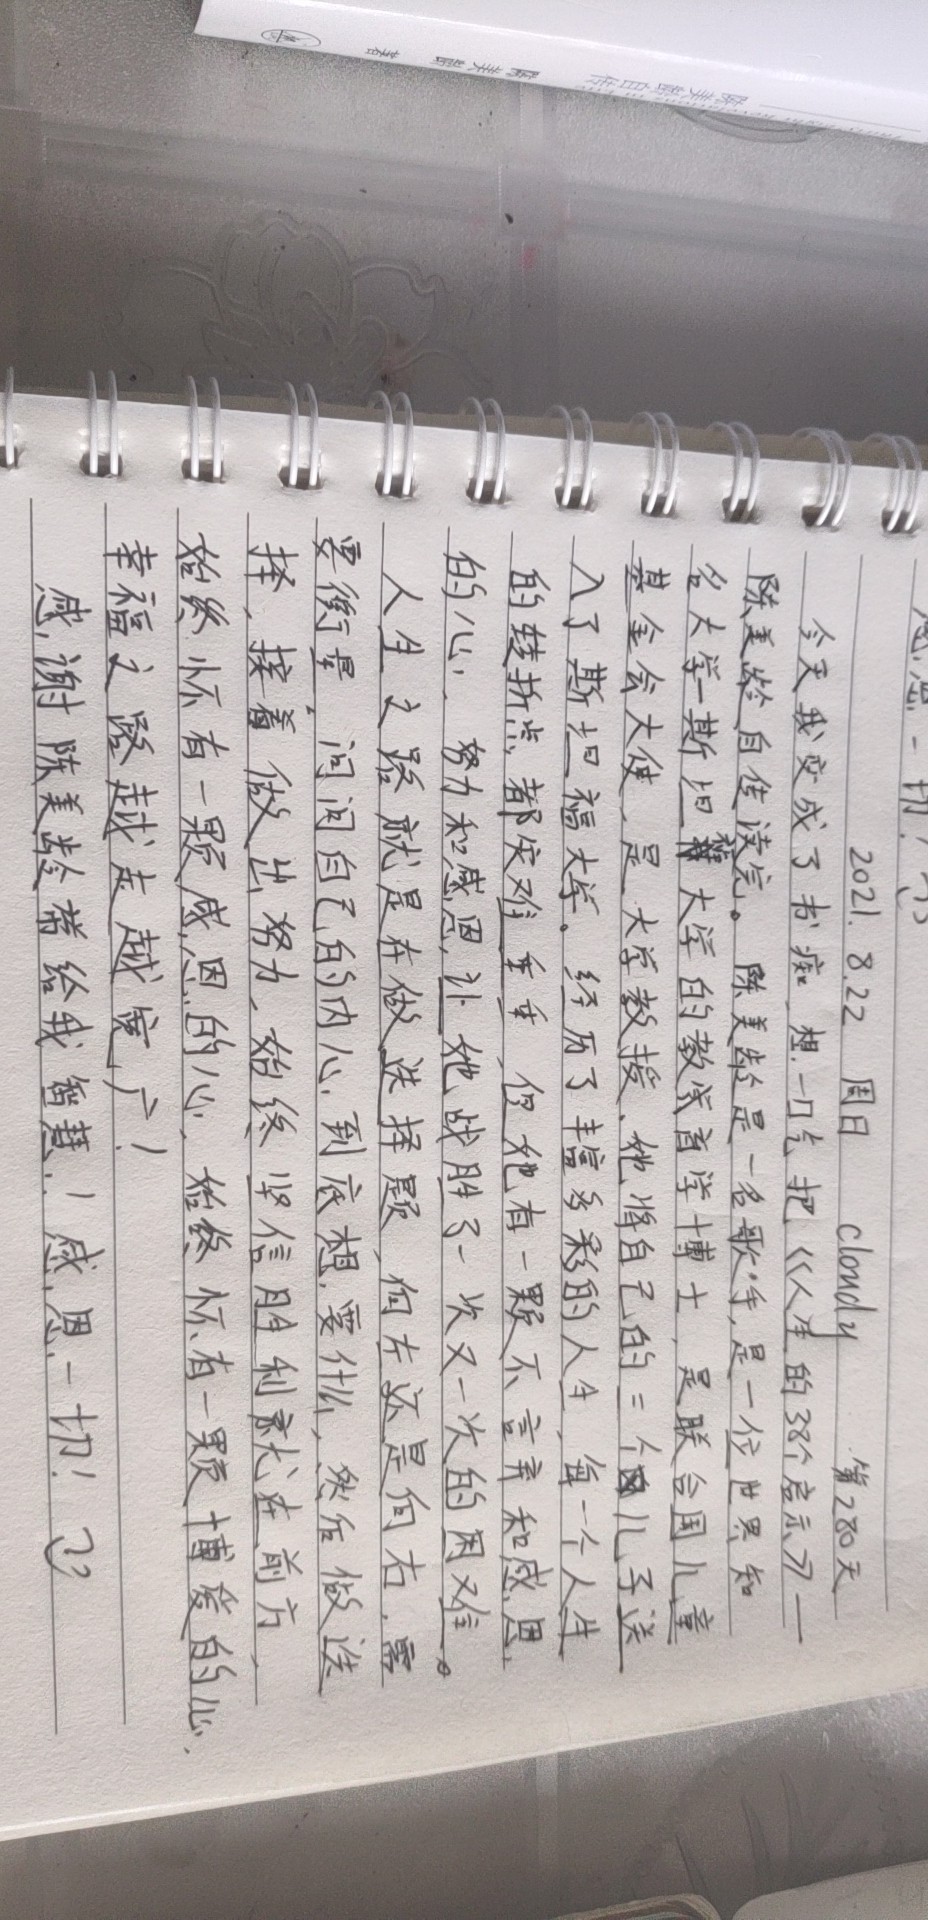 感恩一切！
2021. 8.22 周日 cloudy 第280天
今天我变成了书痴，想一口气把《人生的38个启示》—
陈美龄自传读完。陈美龄是一名歌手，是一位世界知
名大学—斯坦福大学的教育学博士，是联合国儿童
基金会大使，是大学教授、她将自己的三个儿子送
入了斯坦福大学。经历了丰富多彩的人生，每一个人生
的转折点，都灾难重重，但她有一颗不言弃和感恩
的心，努力和感恩让她战胜了一次又一次的困难。
人生之路就是在做选择题，向左还是向右，需
要衡量，问问自己的内心，到底想要什么，然后做选
择，接着做出努力，始终坚信胜利就在前方，
始终怀有一颗感恩的心，始终怀有一颗博爱的心，
幸福之路越走越宽广！
感谢陈美龄带给我智慧！感恩一切！
陈美龄自传
陈美龄 著